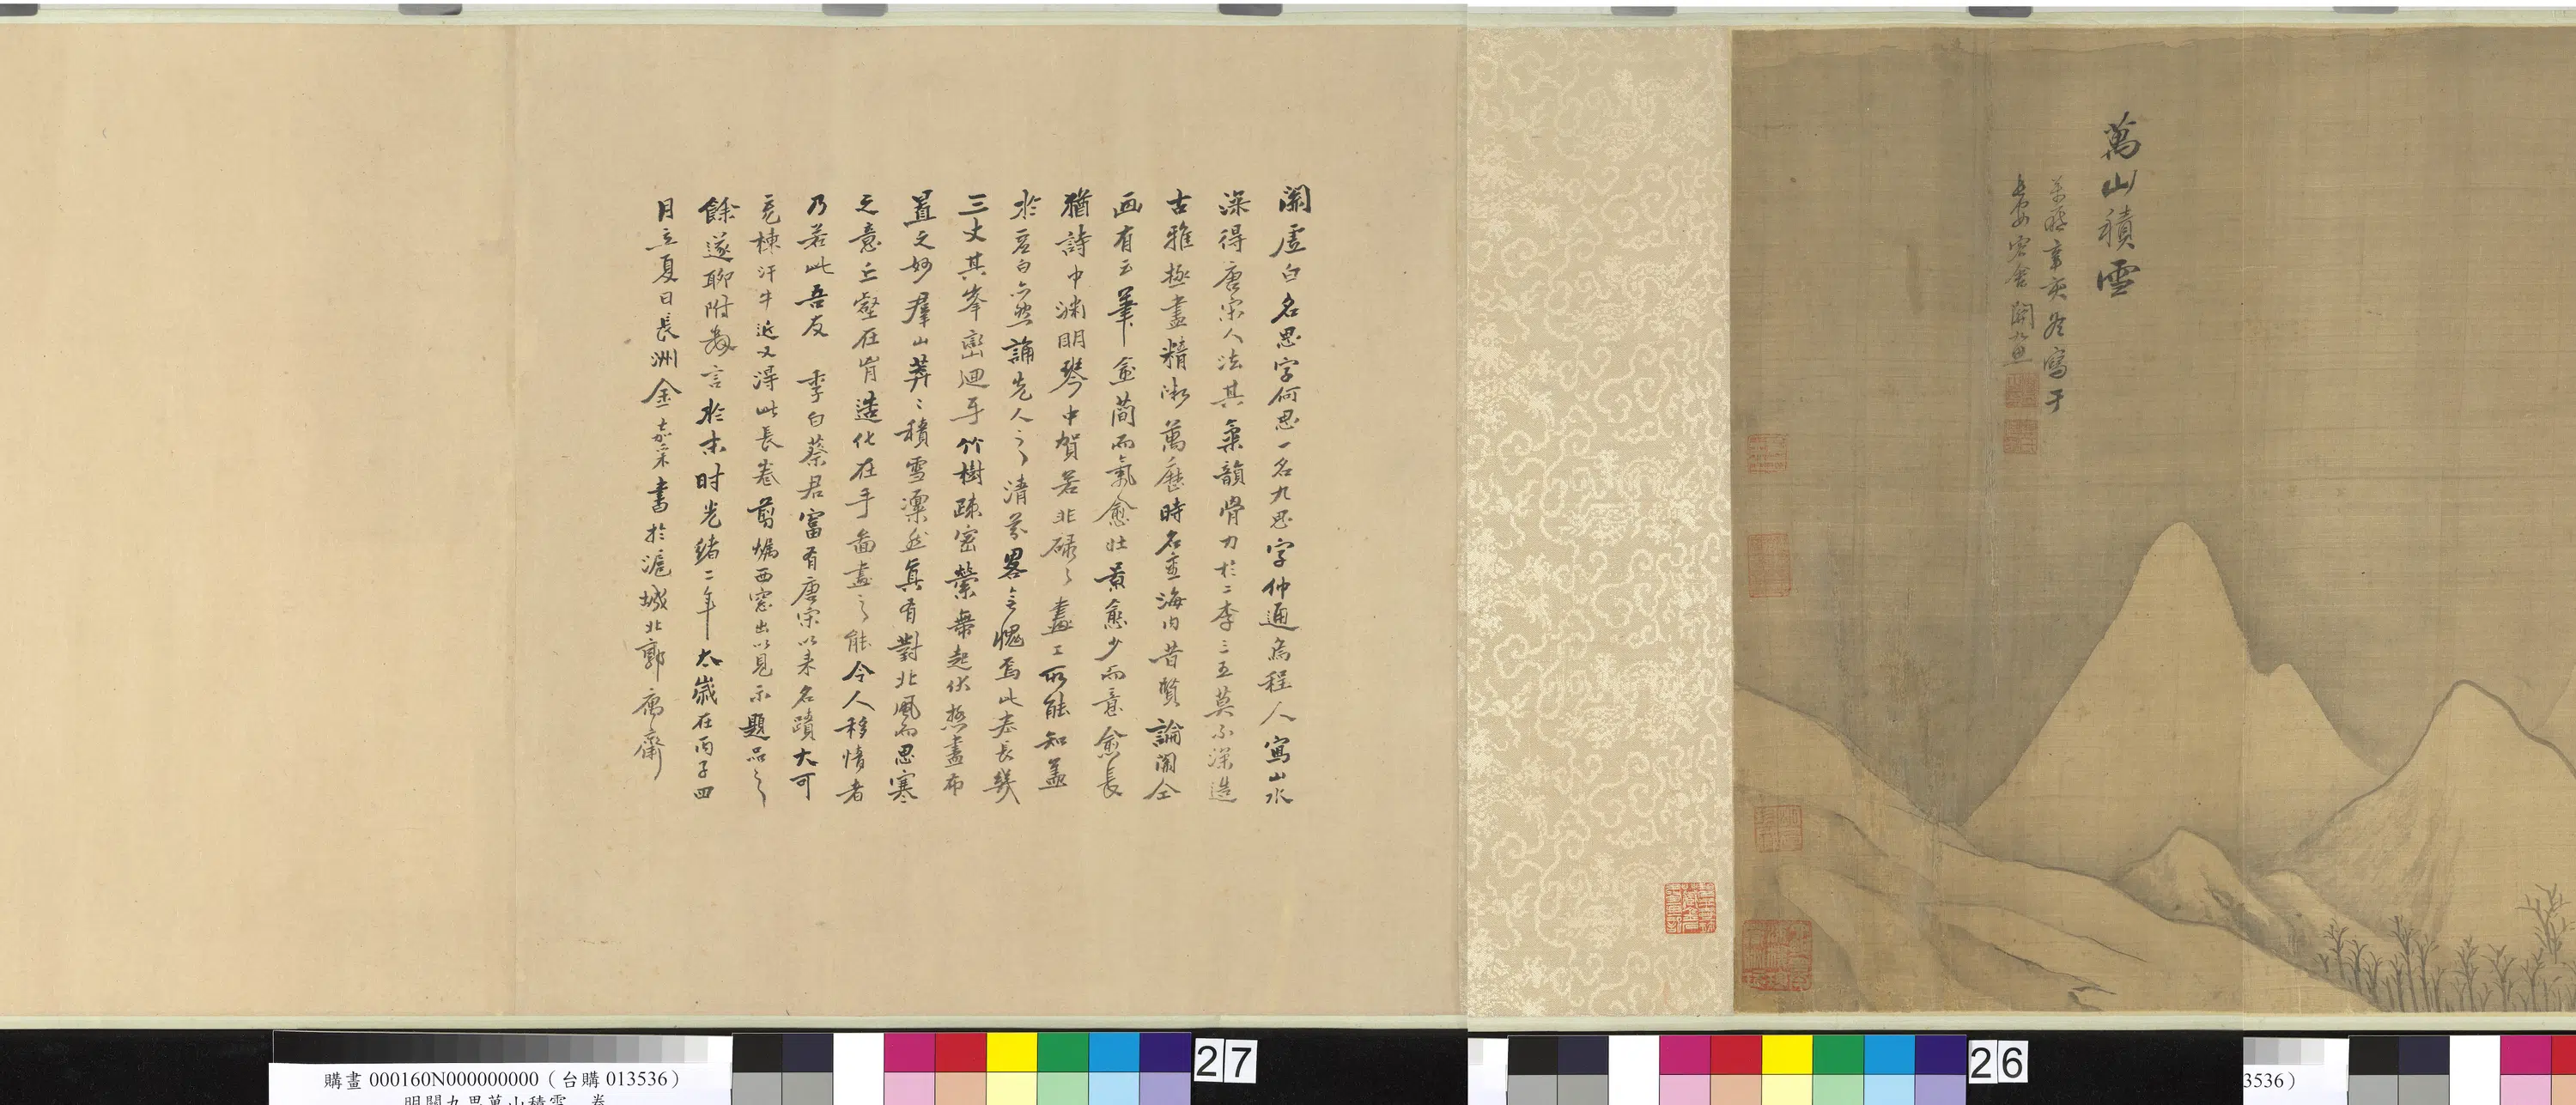 萬山積雪
萬曆辛亥冬寫于
長安客舍關九思
關虛白名思字何思一名九思字仲通烏程人寫山水
深得唐宋人法其氣韻骨力於二李三王莫不深造
古雅極盡精微萬曆時名重海內昔賢論關仝
画有云筆愈簡而氣愈壯景愈少而意愈長
猶詩中淵明琴中賀若非碌々畫工所能知蓋
於虛白亦然誦先人之清芬畧令愧焉此卷長幾
三丈其峯巒迴乎竹樹疎密縈舞起伏極盡布
置之妙羣山莽々積雪凜然真有對北風而思寒
之意丘壑在胷造化在手啚畫之能令人移情者
乃若此吾友 季白蔡君富有唐宋以来名蹟大可
充棟汗牛近又淂此長卷剪燭西窓出以見示題品之
餘遂聊附數言於末时光緒二年太歲在丙子四
月立夏日長洲金嘉采書於滬城北郭寓齋
27
26
購畫 000160N000000000（台購 013536）
明關九思萬山積雪 卷
3536）